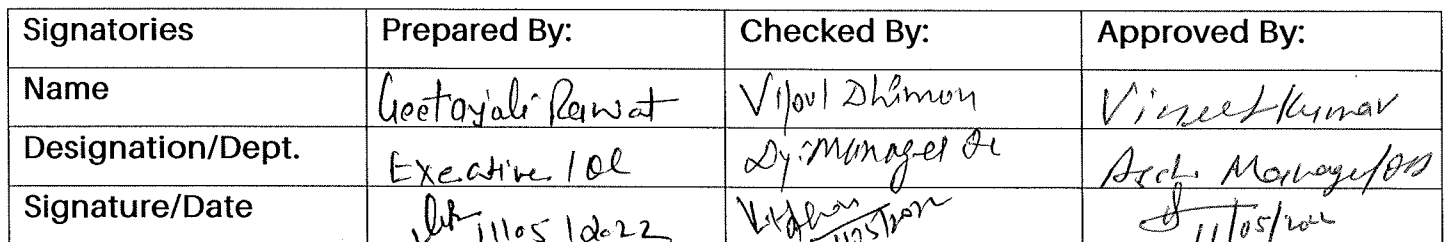 Signatories Prepared By: Checked By: Approved By:
Name Geetanjali Rawat Vipul Dhiman Vineet Kumar
Designation/Dept. Executive / Dy. Manager Manager/
Signature/Date 11/05/2022 11/05/2022 11/05/2022